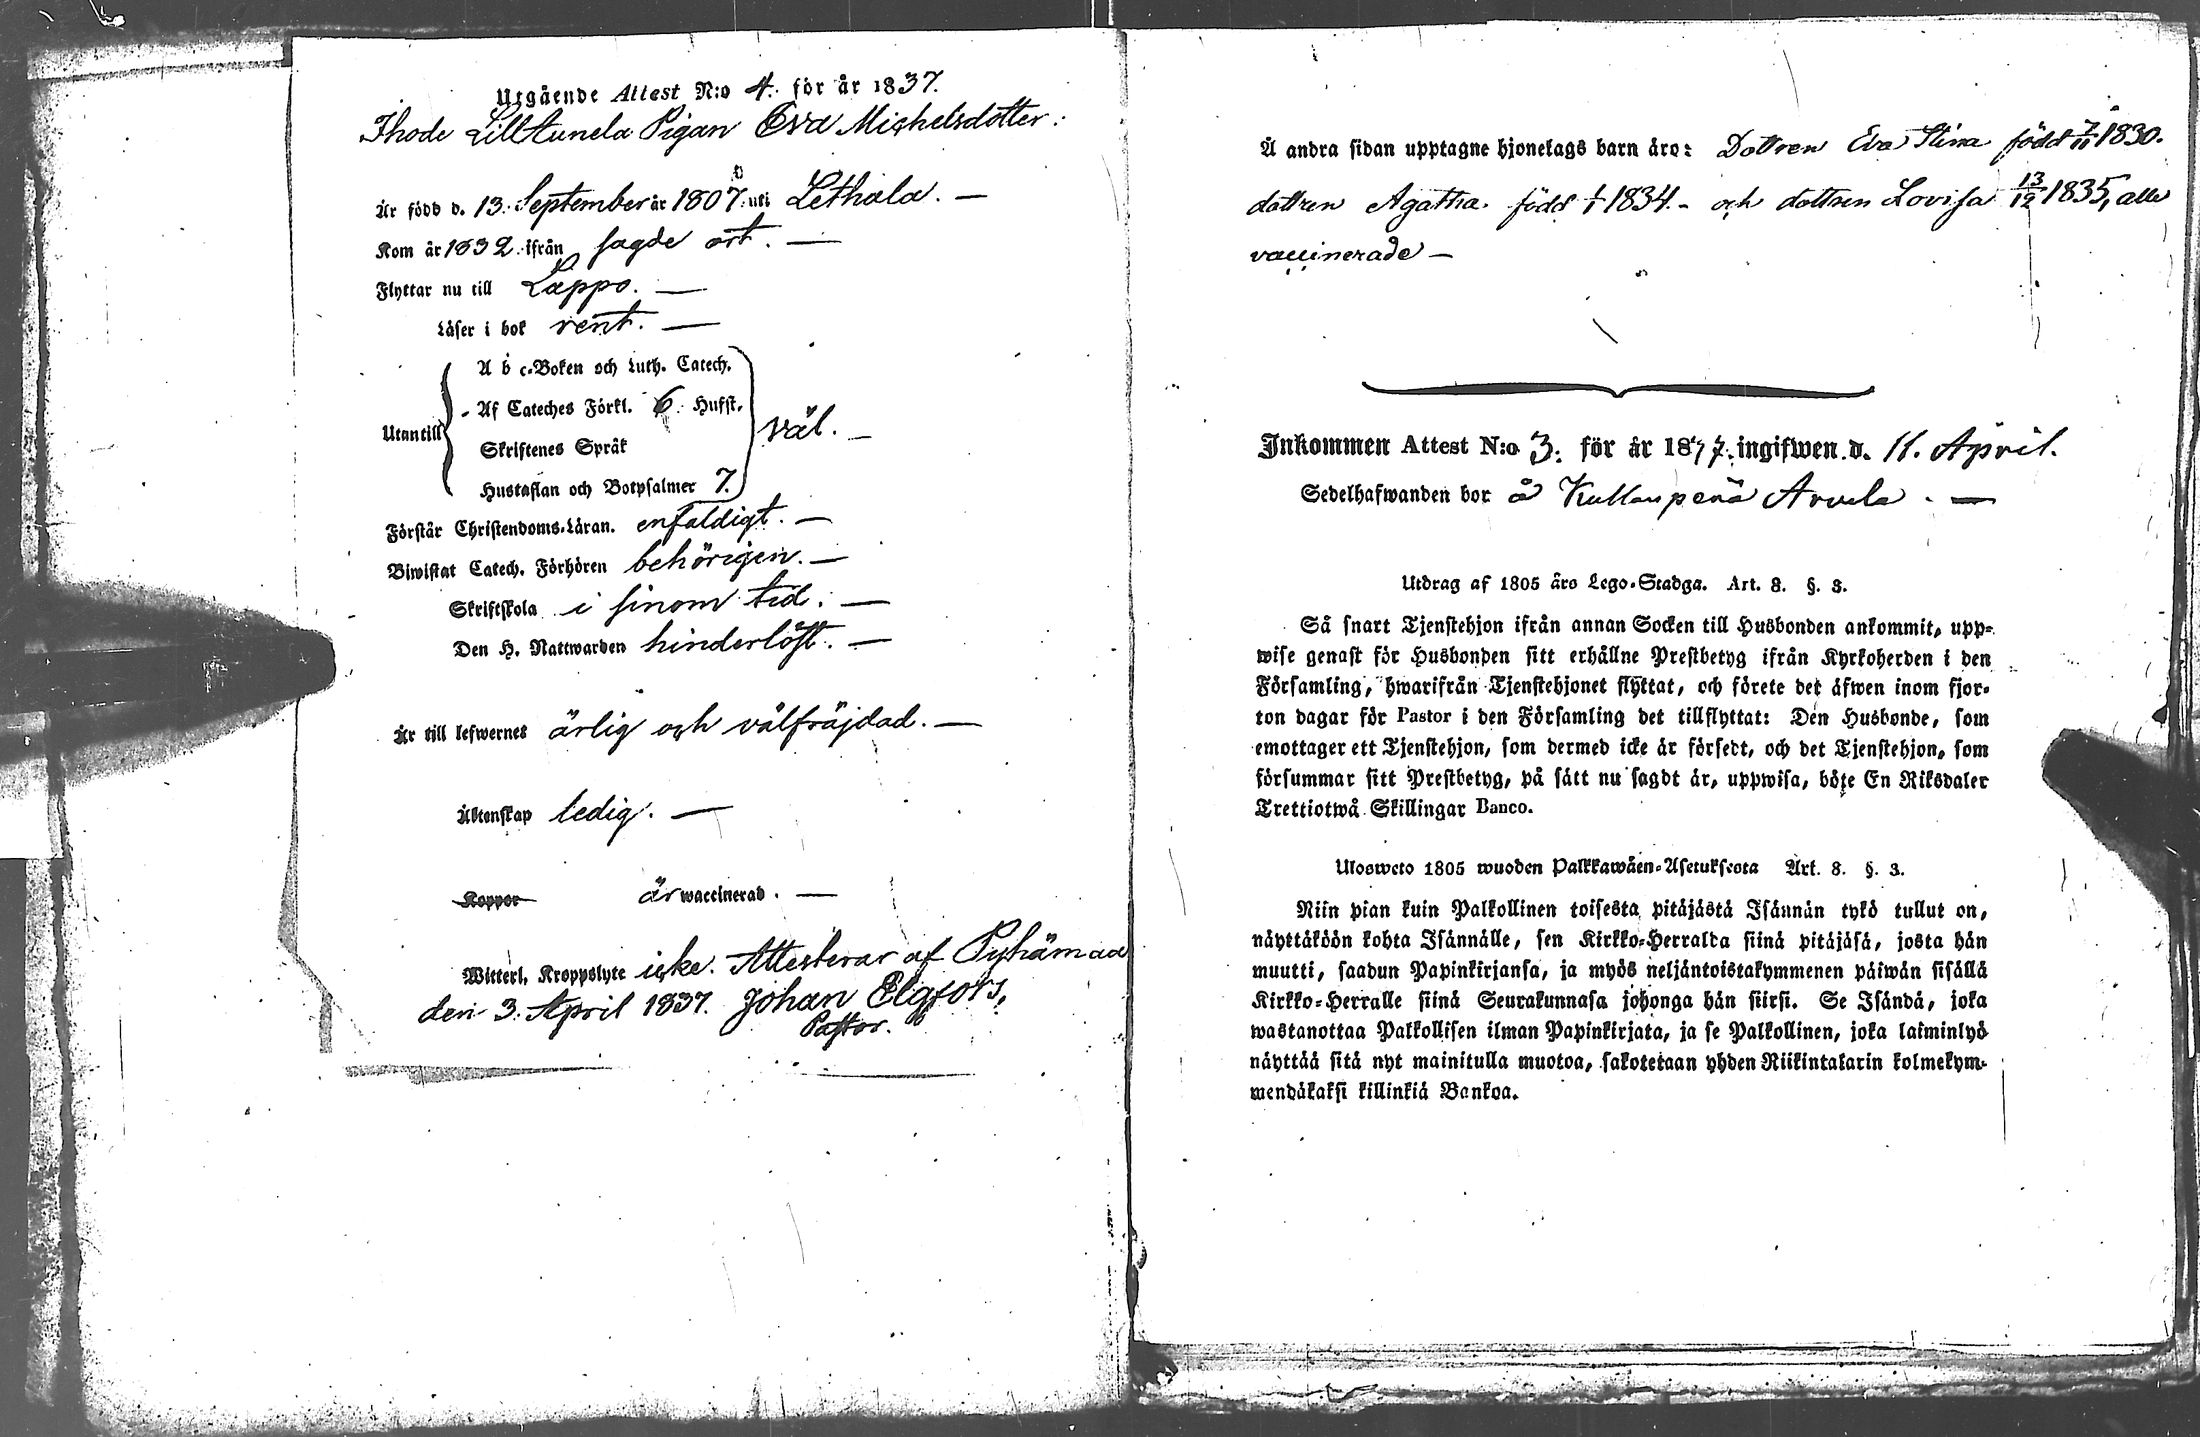 Utgående Attest N:o 4. för år 1837.
Ihode Lill Aunela Pigan Eva Michelsdotter:
Är född d. 13. September år 1807. uti Lethala. —
Kom år 1832. ifrån sagde ort. —
Flyttar nu till Lappo. —
Läser i bok rent. —
A b c-Boken och Luth. Catech.
Af Cateches Förkl. 6. Hufst.
Utantill väl. —
Skriftenes Språk
Hustaflan och Botpsalmer 7.
Förstår Christendoms-Läran. enfaldigt. —
Biwistat Catech. Förhören behörigen. —
Skriftskola i sinom tid. —
Den H. Nattwarden hinderlöst. —
Är till lefwernet ärlig och välfräjdad. —
Äktenskap ledig. —
Koppor är waccinerad. —
Witterl. Kroppslyte icke. Attesterar af Pyhämaa
den 3. April 1837. Johan Elgfors,
Pastor.
Å andra sidan upptagne hjonelags barn äro: Dottren Eva Stina född 7/11 1830.
dottren Agatha. född 1/1 1834. - och dottren Lovisa 13/12 1835, alla
vaccinerade —
Inkommen Attest N:o 3. för år 1837. ingifwen d. 11. April.
Sedelhafwanden bor å Kullanperä Arvela. —
Utdrag af 1805 års Lego-Stadga. Art. 8. §. 3.
Så snart Tjenstehjon ifrån annan Socken till Husbonden ankommit, upp-
wise genast för Husbonden sitt erhållne Prestbetyg ifrån Kyrkoherden i den
Församling, hwarifrån Tjenstehjonet flyttat, och förete det äfwen inom fjor-
ton dagar för Pastor i den Församling det tillflyttat: Den Husbonde, som
emottager ett Tjenstehjon, som dermed icke är försedt, och det Tjenstehjon, som
försummar sitt Prestbetyg, på sätt nu sagdt är, uppwisa, böte En Riksdaler
Trettiotwå Skillingar Banco.
Ulosweto 1805 wuoden Palkkawäen-Asetuksesta Art. 8. §. 3.
Niin pian kuin Palkollinen toisesta pitäjästä Isännän tykö tullut on,
näyttäköön kohta Isännälle, sen Kirkko-Herralta siinä pitäjäsä, josta hän
muutti, saadun Papinkirjansa, ja myös neljäntoistakymmenen päiwän sisällä
Kirkko-Herralle siinä Seurakunnasa johonga hän siirsi. Se Isändä, joka
wastanottaa Palkollisen ilman Papinkirjata, ja se Palkollinen, joka laiminlyö
näyttää sitä nyt mainitulla muotoa, sakotetaan yhden Riikintalarin kolmekym-
mendäkaksi killinkiä Bankoa.